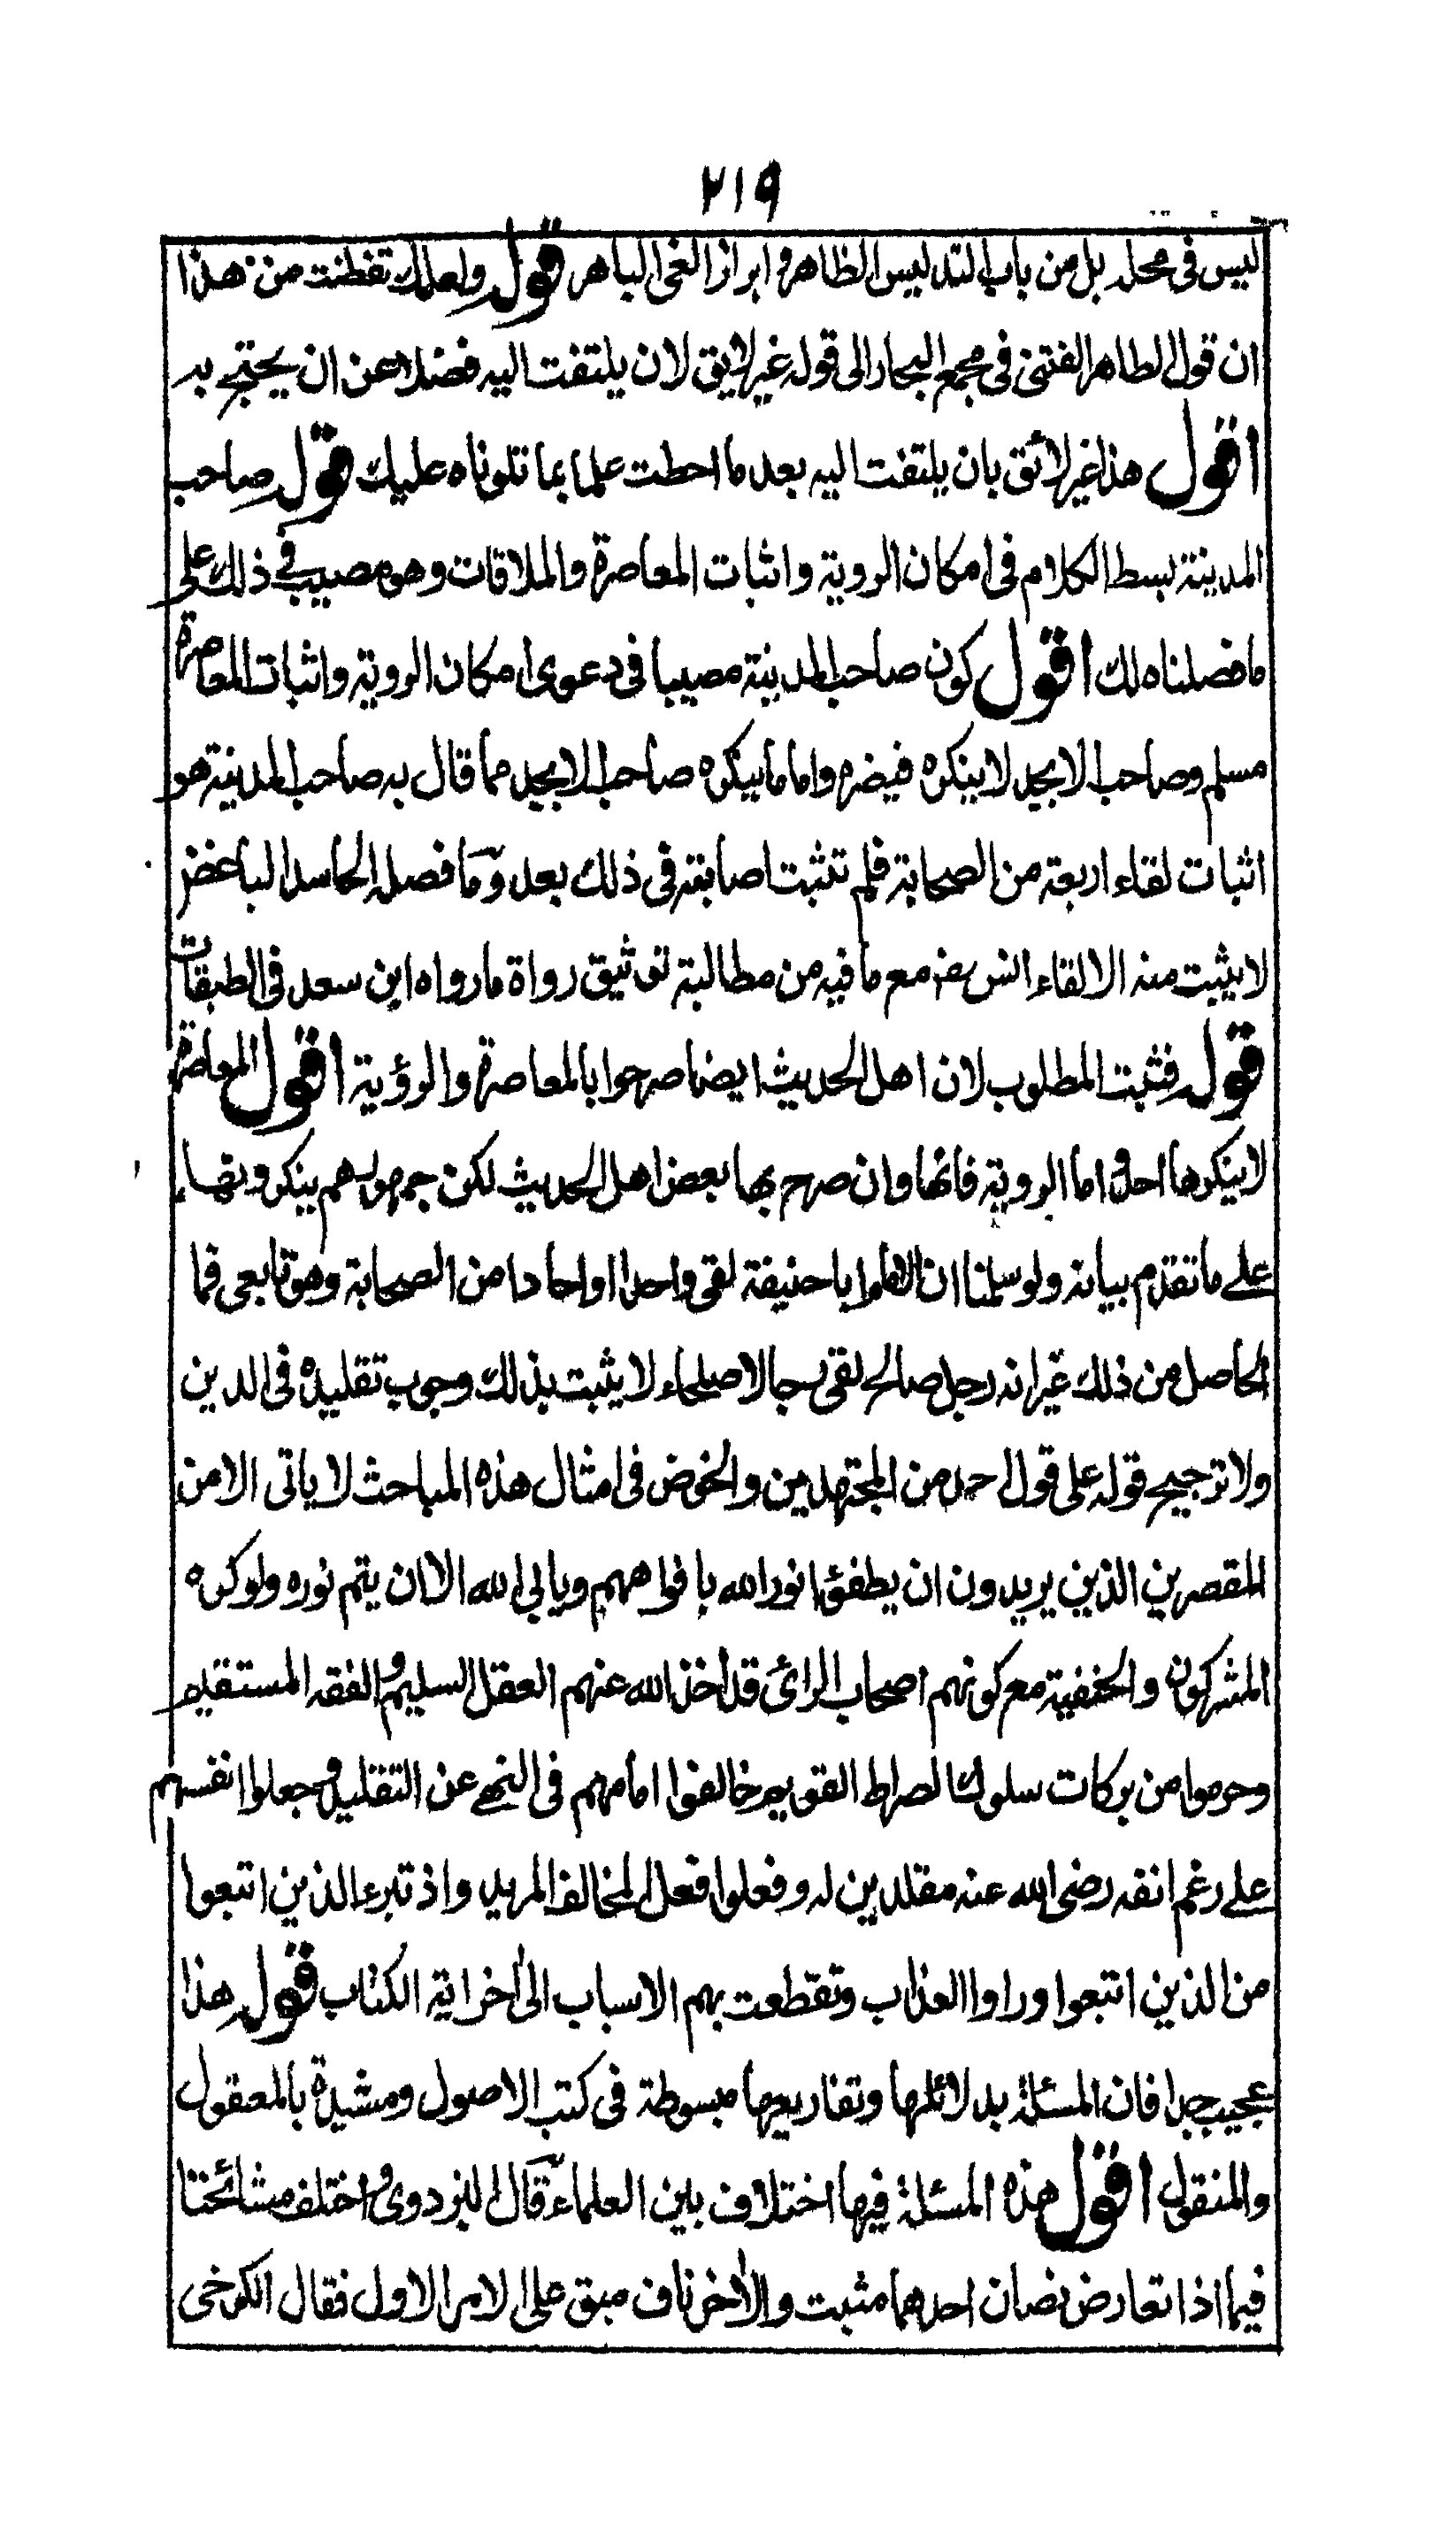 ٢١٩
ليس فى محله بل من باب التدليس الظاهر و ابراز الغى الباهر قوله ولعلك تفطنت من هذا
ان قول الطاهر الفتنى فى مجمع البحار الى قوله غير لايق لان يلتفت اليه فضلا عن ان يحتج به
اقول هذا غير لائق بان يلتفت اليه بعد ما احطت علما بما تلوناه عليك قوله صاحب
المدينة بسط الكلام فى امكان الروية واثبات المعاصرة والملاقات وهو مصيب فى ذلك على
ما فصلناه لك اقول كون صاحب المدينة مصيبا فى دعوى امكان الروية واثبات المعاصرة
مسلم وصاحب الابجد لا ينكره فيضره واما ما ينكره صاحب الابجد مما قال به صاحب المدينة هو
اثبات لقاء اربعة من الصحابة فلم تثبت اصابته فى ذلك بعد وما فصله الحاسد الباغض
لا يثبت منه الا لقاء انس رضـ مع ما فيه من مطالبة توثيق رواة ما رواه ابن سعد فى الطبقات
قوله فثبت المطلوب لان اهل الحديث ايضا صرحوا بالمعاصرة والرؤية اقول المعاصرة
لا ينكرها احد و اما الروية فانها وان صرح بها بعض اهل الحديث لكن جمهورهم ينكرونها
على ما تقدم بيانه ولو سلمنا ان الامام ابا حنيفة لقى واحدا او احادا من الصحابة وهو تابعى فما
الحاصل من ذلك غير انه رجل صالح لقى رجالا صلحاء لا يثبت بذلك وجوب تقليده فى الدين
ولا ترجيح قوله على قول احد من المجتهدين والخوض فى امثال هذه المباحث لا ياتى الا من
المقصرين الذين يريدون ان يطفؤا نور الله بافواههم ويابى الله الا ان يتم نوره ولو كره
المشركون والحنفية مع كونهم اصحاب الرائ قد اخذ الله عنهم العقل السليم و الفقه المستقيم
وحرموا من بركات سلوك الصراط القويم خالفوا امامهم فى النهى عن التقليد و جعلوا انفسهم
على رغم انفه رضى الله عنه مقلدين له وفعلوا فعل المخالف المريد واذ تبرء الذين اتبعوا
من الذين اتبعوا وراوا العذاب وتقطعت بهم الاسباب الى اخر اية الكتاب قوله هذا
عجيب جدا فان المسئلة بدلائلها وتفاريعها مبسوطة فى كتب الاصول ومشيدة بالمعقول
والمنقول اقول هذه المسئلة فيها اختلاف بين العلماء قال البزدوى و اختلف مشائخنا
فيما اذا تعارض نصان احدهما مثبت والاخر ناف مبق على الامر الاول فقال الكرخى